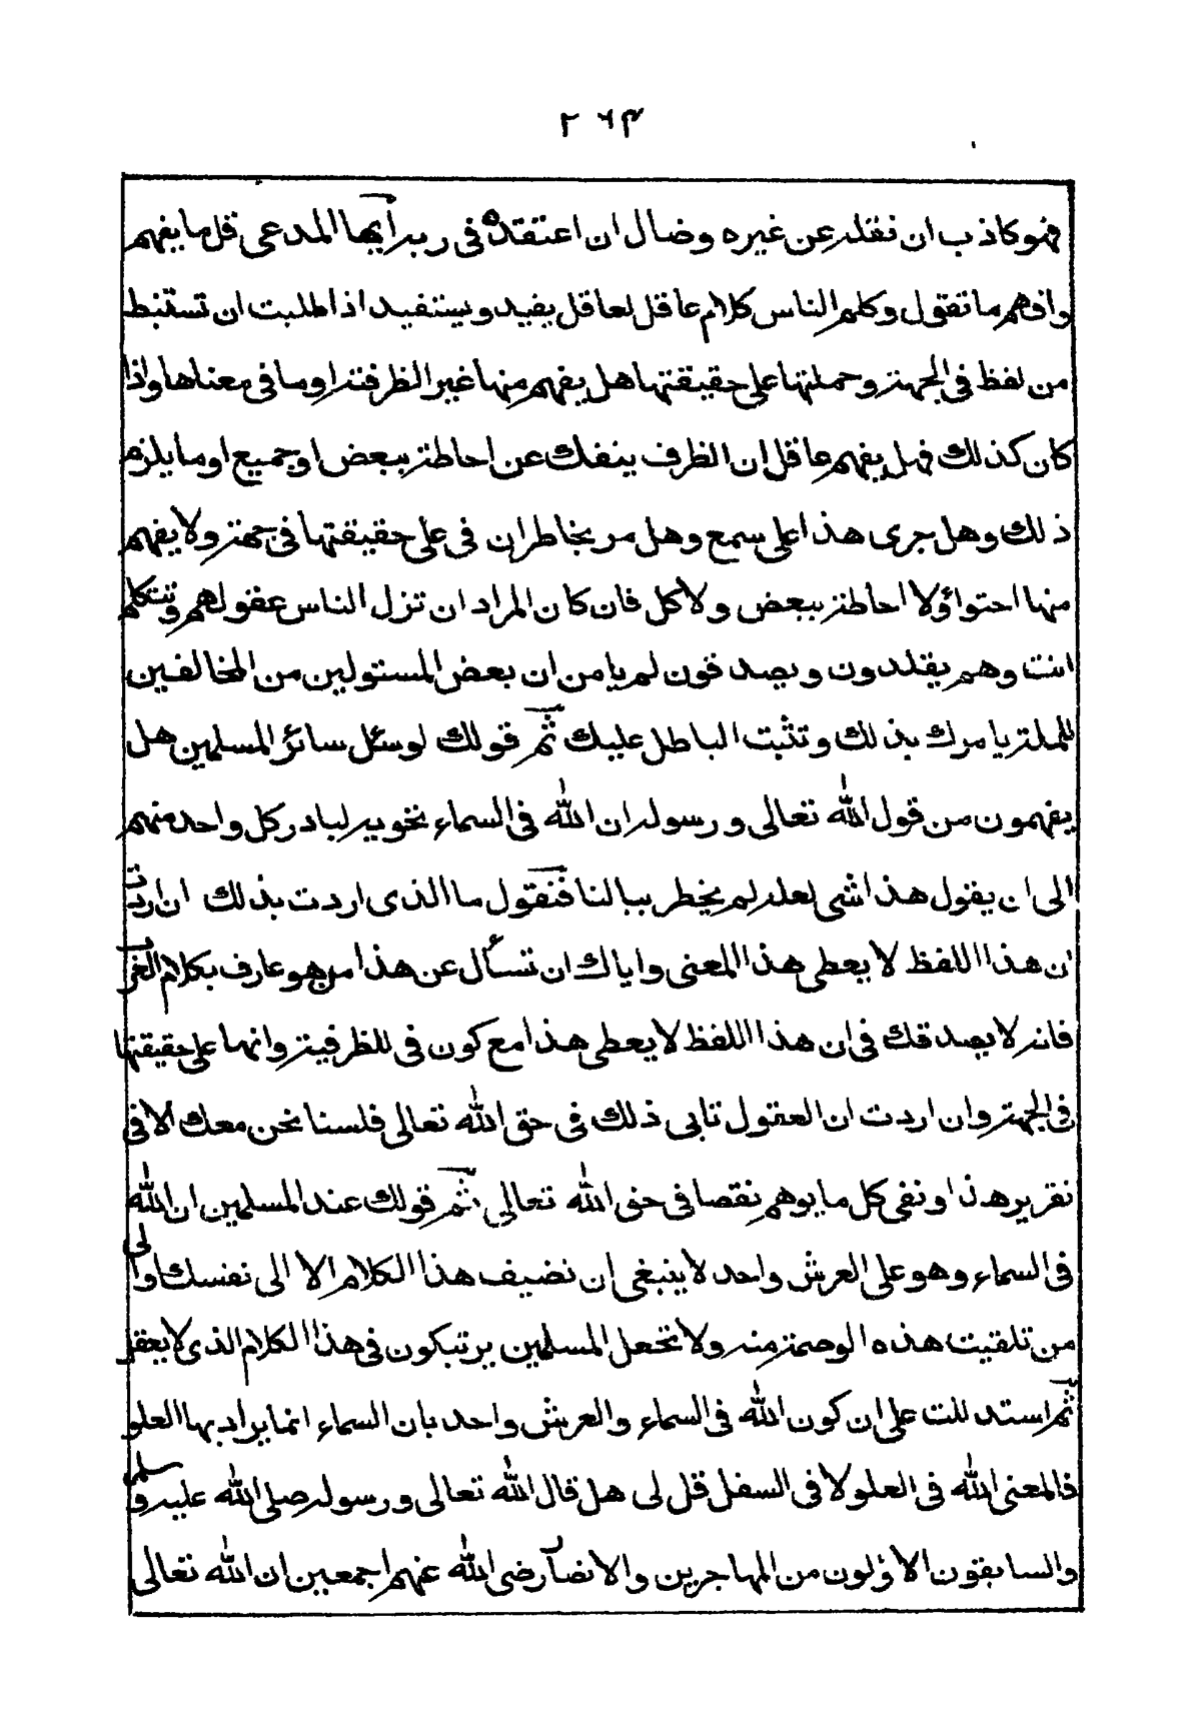 ٢٦٣
فهو كاذب ان نقله عن غيره وضال ان اعتقده فى ربه ايها المدعى قل ما يفهم
وافهم ما تقول وكلم الناس كلام عاقل لعاقل يفيد ويستفيد اذا طلبت ان تستنبط
من لفظ فى الجهة وحملتها على حقيقتها هل يفهم منها غير الظرفية او ما فى معناها واذا
كان كذلك فهل يفهم عاقل ان الظرف ينفك عن احاطة ببعض او جميع او ما يلزم
ذلك وهل جرى هذا على سمع وهل من يخاطر ان فى على حقيقتها فى جهة ولا يفهم
منها احتواؤ ولا احاطة ببعض ولا كل فان كان المراد ان تزل الناس عقولهم وتتكلم
انت وهم يقلدون ويصدقون لم يا من ان بعض المستولين من المخالفين
للملة يامرك بذلك وتثبت الباطل عليك ثم قولك لو سئل سائر المسلمين هل
يفهمون من قول الله تعالى ورسوله ان الله فى السماء تحويه لبادر كل واحد منهم
الى ان يقول هذا شى لعله لم يخطر ببالنا فنقول ما الذى اردت بذلك ان اردت
ان هذا اللفظ لا يعطى هذا المعنى واياك ان تسأل عن هذا من هو عارف بكلام العرب
فانه لا يصدقك فى ان هذا اللفظ لا يعطى هذا مع كون فى للظرفية وانها على حقيقتها
فى الجهة وان اردت ان العقول تابى ذلك فى حق الله تعالى فلسنا نحن معك الا فى
تقرير هذا ونفى كل ما يوهم نقصا فى حق الله تعالى ثم قولك عند المسلمين ان الله
فى السماء وهو على العرش واحد لا ينبغى ان تضيف هذا الكلام الا الى نفسك او الى
من تلقيت هذه الوصمة منه ولا تجعل المسلمين يرتبكون فى هذا الكلام الذى لا يعقل
ثم استدللت على ان كون الله فى السماء والعرش واحد بان السماء انما يراد بها العلو
فالمعنى الله فى العلو لا فى السفل قل لى هل قال الله تعالى ورسوله صلى الله عليه وسلم
والسابقون الاؤلون من المهاجرين والانصار رضى الله عنهم اجمعين ان الله تعالى